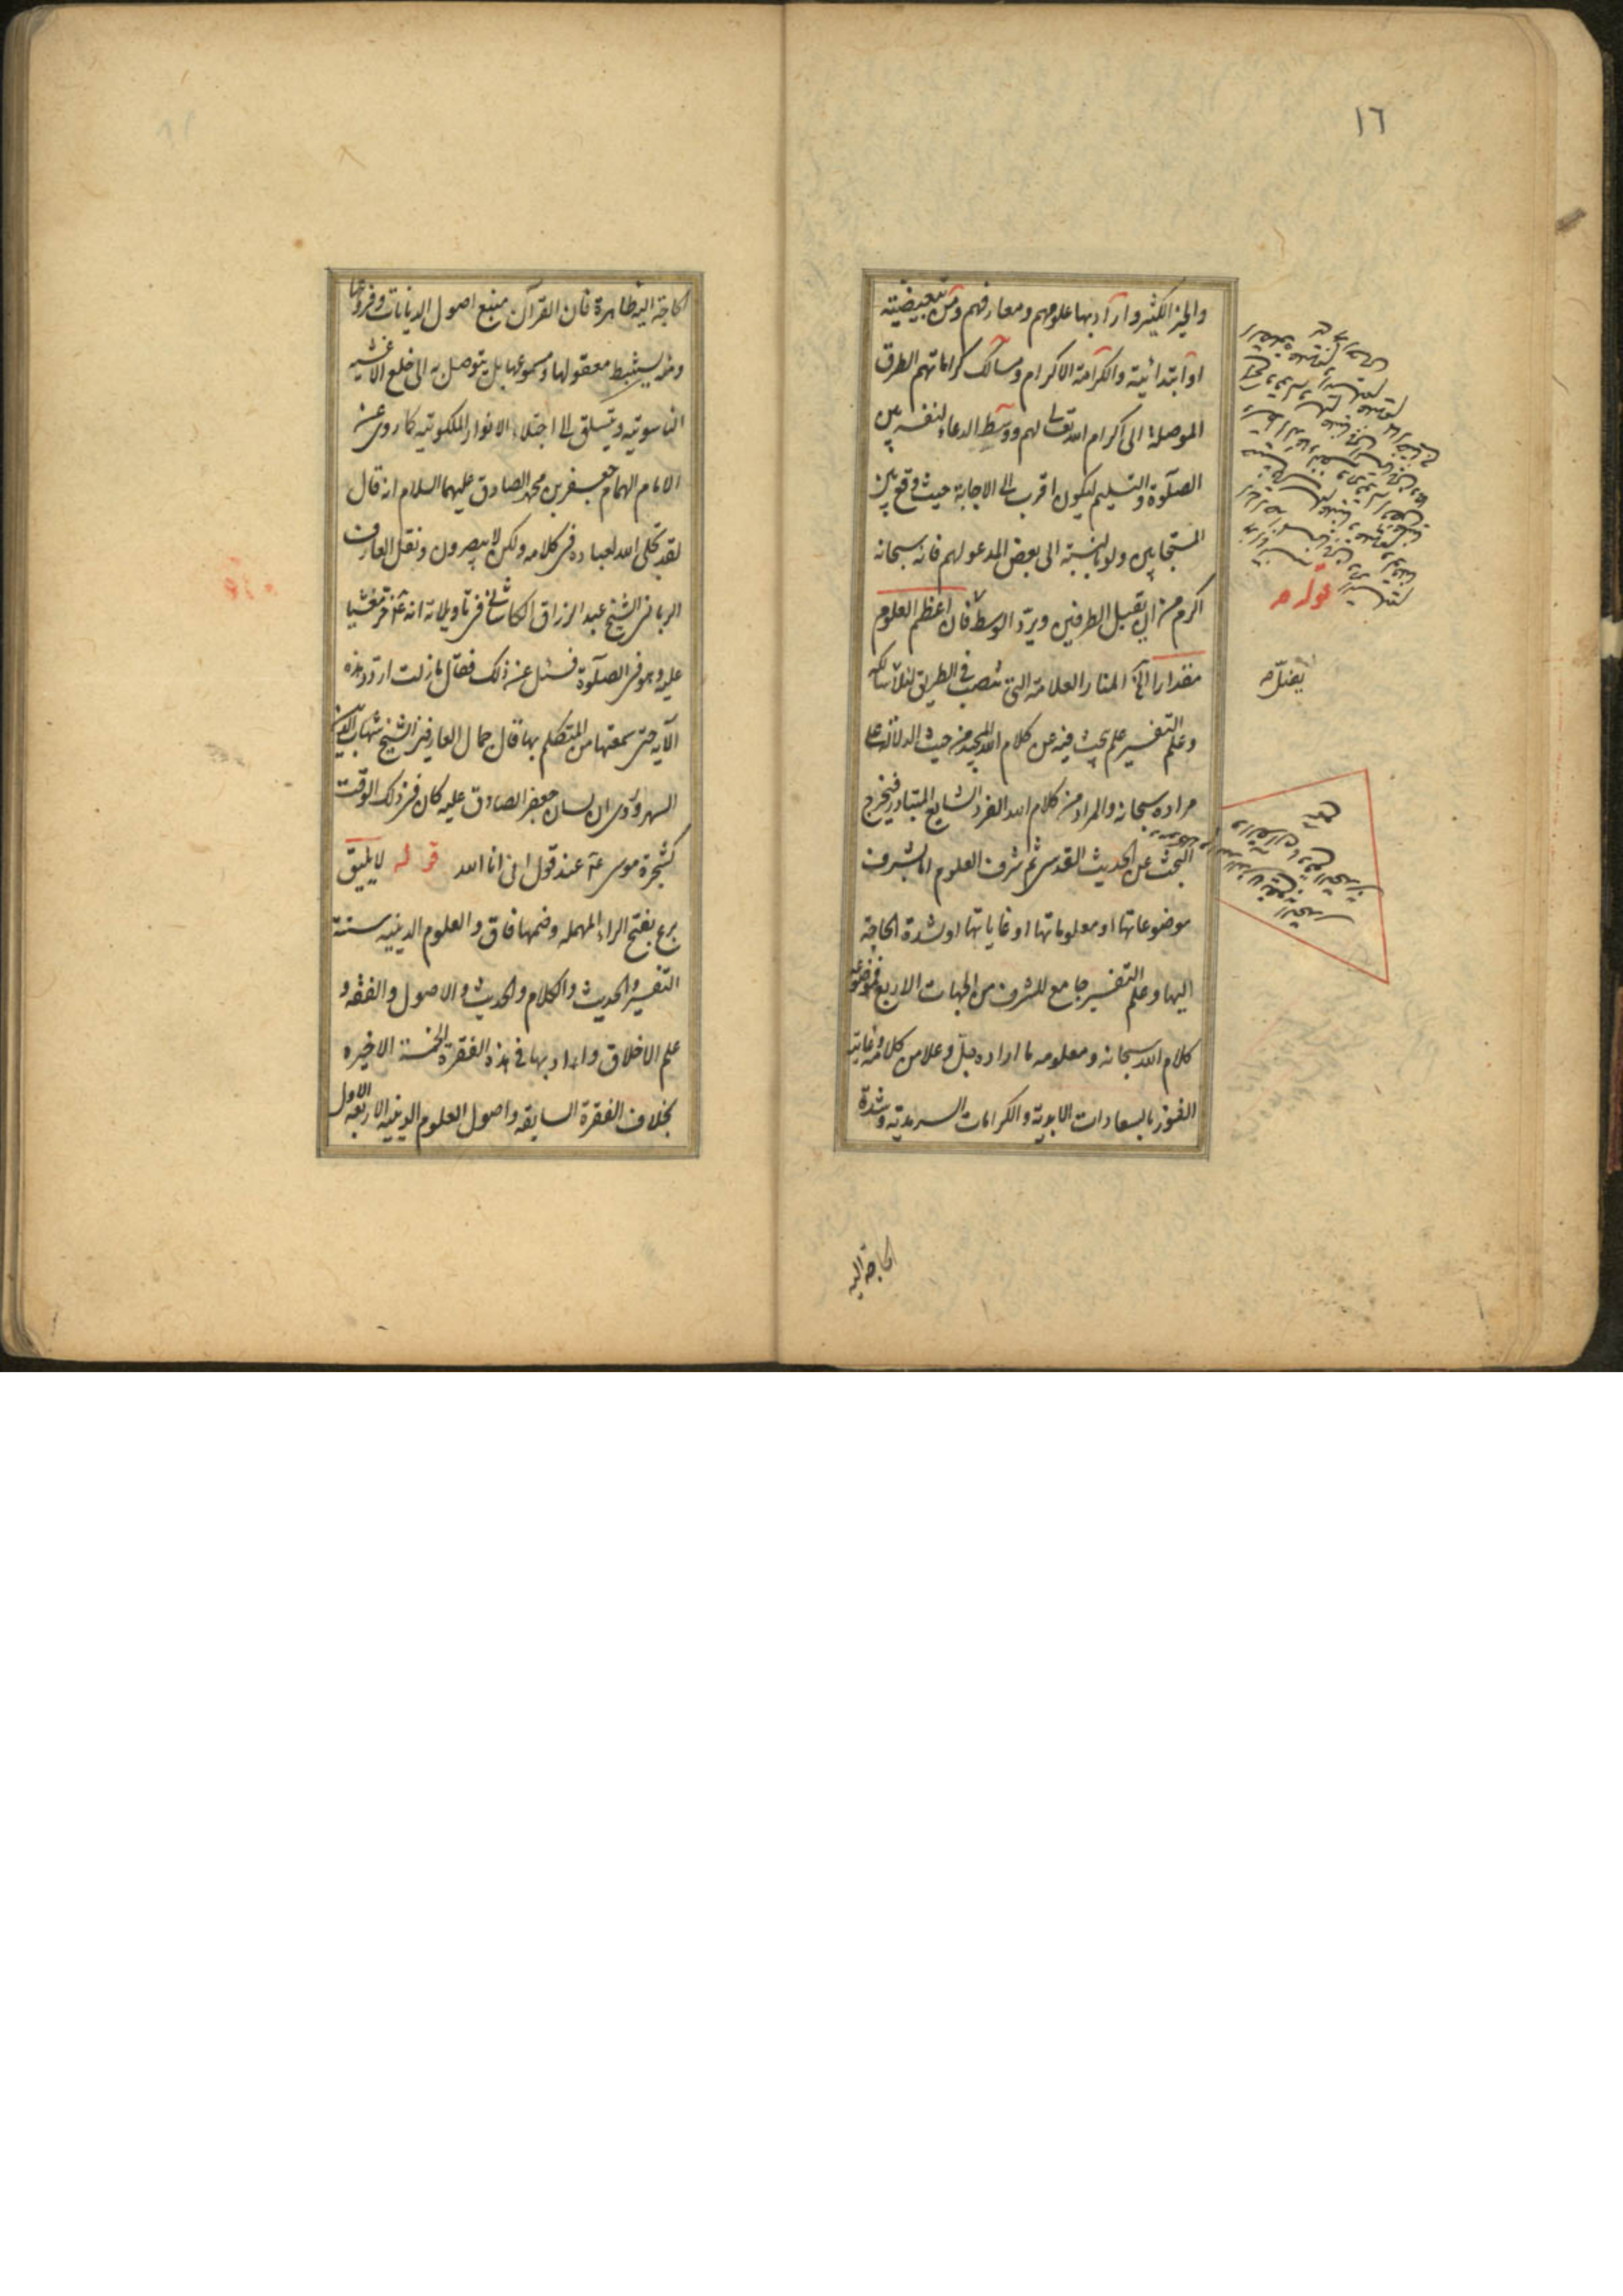 ١٦
والخير الكثير وارآد بها علومهم ومعارفهم ومن تبعيضية
او ابتدائية والكرامة الاكرام ومسالك كراماتهم الطرق
الموصلة الى اكرام الله تعالى لهم ووسط الدعاء لنفسه بين
الصلوة والتسليم ليكون اقرب الى الاجابة حيث وقع بين
المستجابين ولو بالنسبة الى بعض المدعو لهم فانه سبحانه
اكرم من ان يقبل الطرفين ويرد الوسط فان اعظم العلوم
مقدارا المنار العلامة التى تنصب فى الطريق لئلا سالكه
وعلم التفسير علم يبحث فيه عن كلام الله المجيد من حيث الدلالة على
مراده سبحانه والمراد من كلام الله الفرد الشايع المتبادر فيخرج
البحث عن الحديث القدسى ثم شرف العلوم اما بشرف
موضوعاتها او معلوماتها او غاياتها او لشدة الحاجة
اليها وعلم التفسير جامع للشرف من الجهات الاربع فموضوعه
كلام الله سبحانه ومعلومه ما اراده جل وعلا من كلامه وغايته
الفوز بالسعادات الابدية والكرامات السرمدية وشدة
قوله ص
يضل ص
الحاجة اليه
الحاجة اليه ظاهرة فان القرآن منبع اصول الديانات وفروعها
ومنه يستنبط معقولها ومسموعها بل يتوصل به الى خلع الاغشيه
الناسوتيه ويتسلق الى اجتلاء الانوار الملكوتيه كما روى عن
الامام الهمام جعفر بن محمد الصادق عليهما السلام انه قال
لقد تجلى الله لعباده فى كلامه ولكن لا يبصرون ونقل العارف
الربانى الشيخ عبد الرزاق الكاشانى فى تاويلاته انه خر مغشيا
عليه وهو فى الصلوة فسئل عن ذلك فقال ما زلت اردد هذه
الآيه حتى سمعتها من المتكلم بها قال جمال العارفين الشيخ شهاب الدين
السهروردى ان لسان جعفر الصادق عليه كان فى ذلك الوقت
كشجرة موسى ع عند قول انى انا الله قوله لا يليق
برع بفتح الراء المهمله وضمها فاق والعلوم الدينيه ستة
التفسير والحديث والكلام والحديث والاصول والفقه و
علم الاخلاق واراد بها فى هذه الفقرة الخمسة الاخيره
بخلاف الفقرة السابقه واصول العلوم الدينيه الاربعه الاول